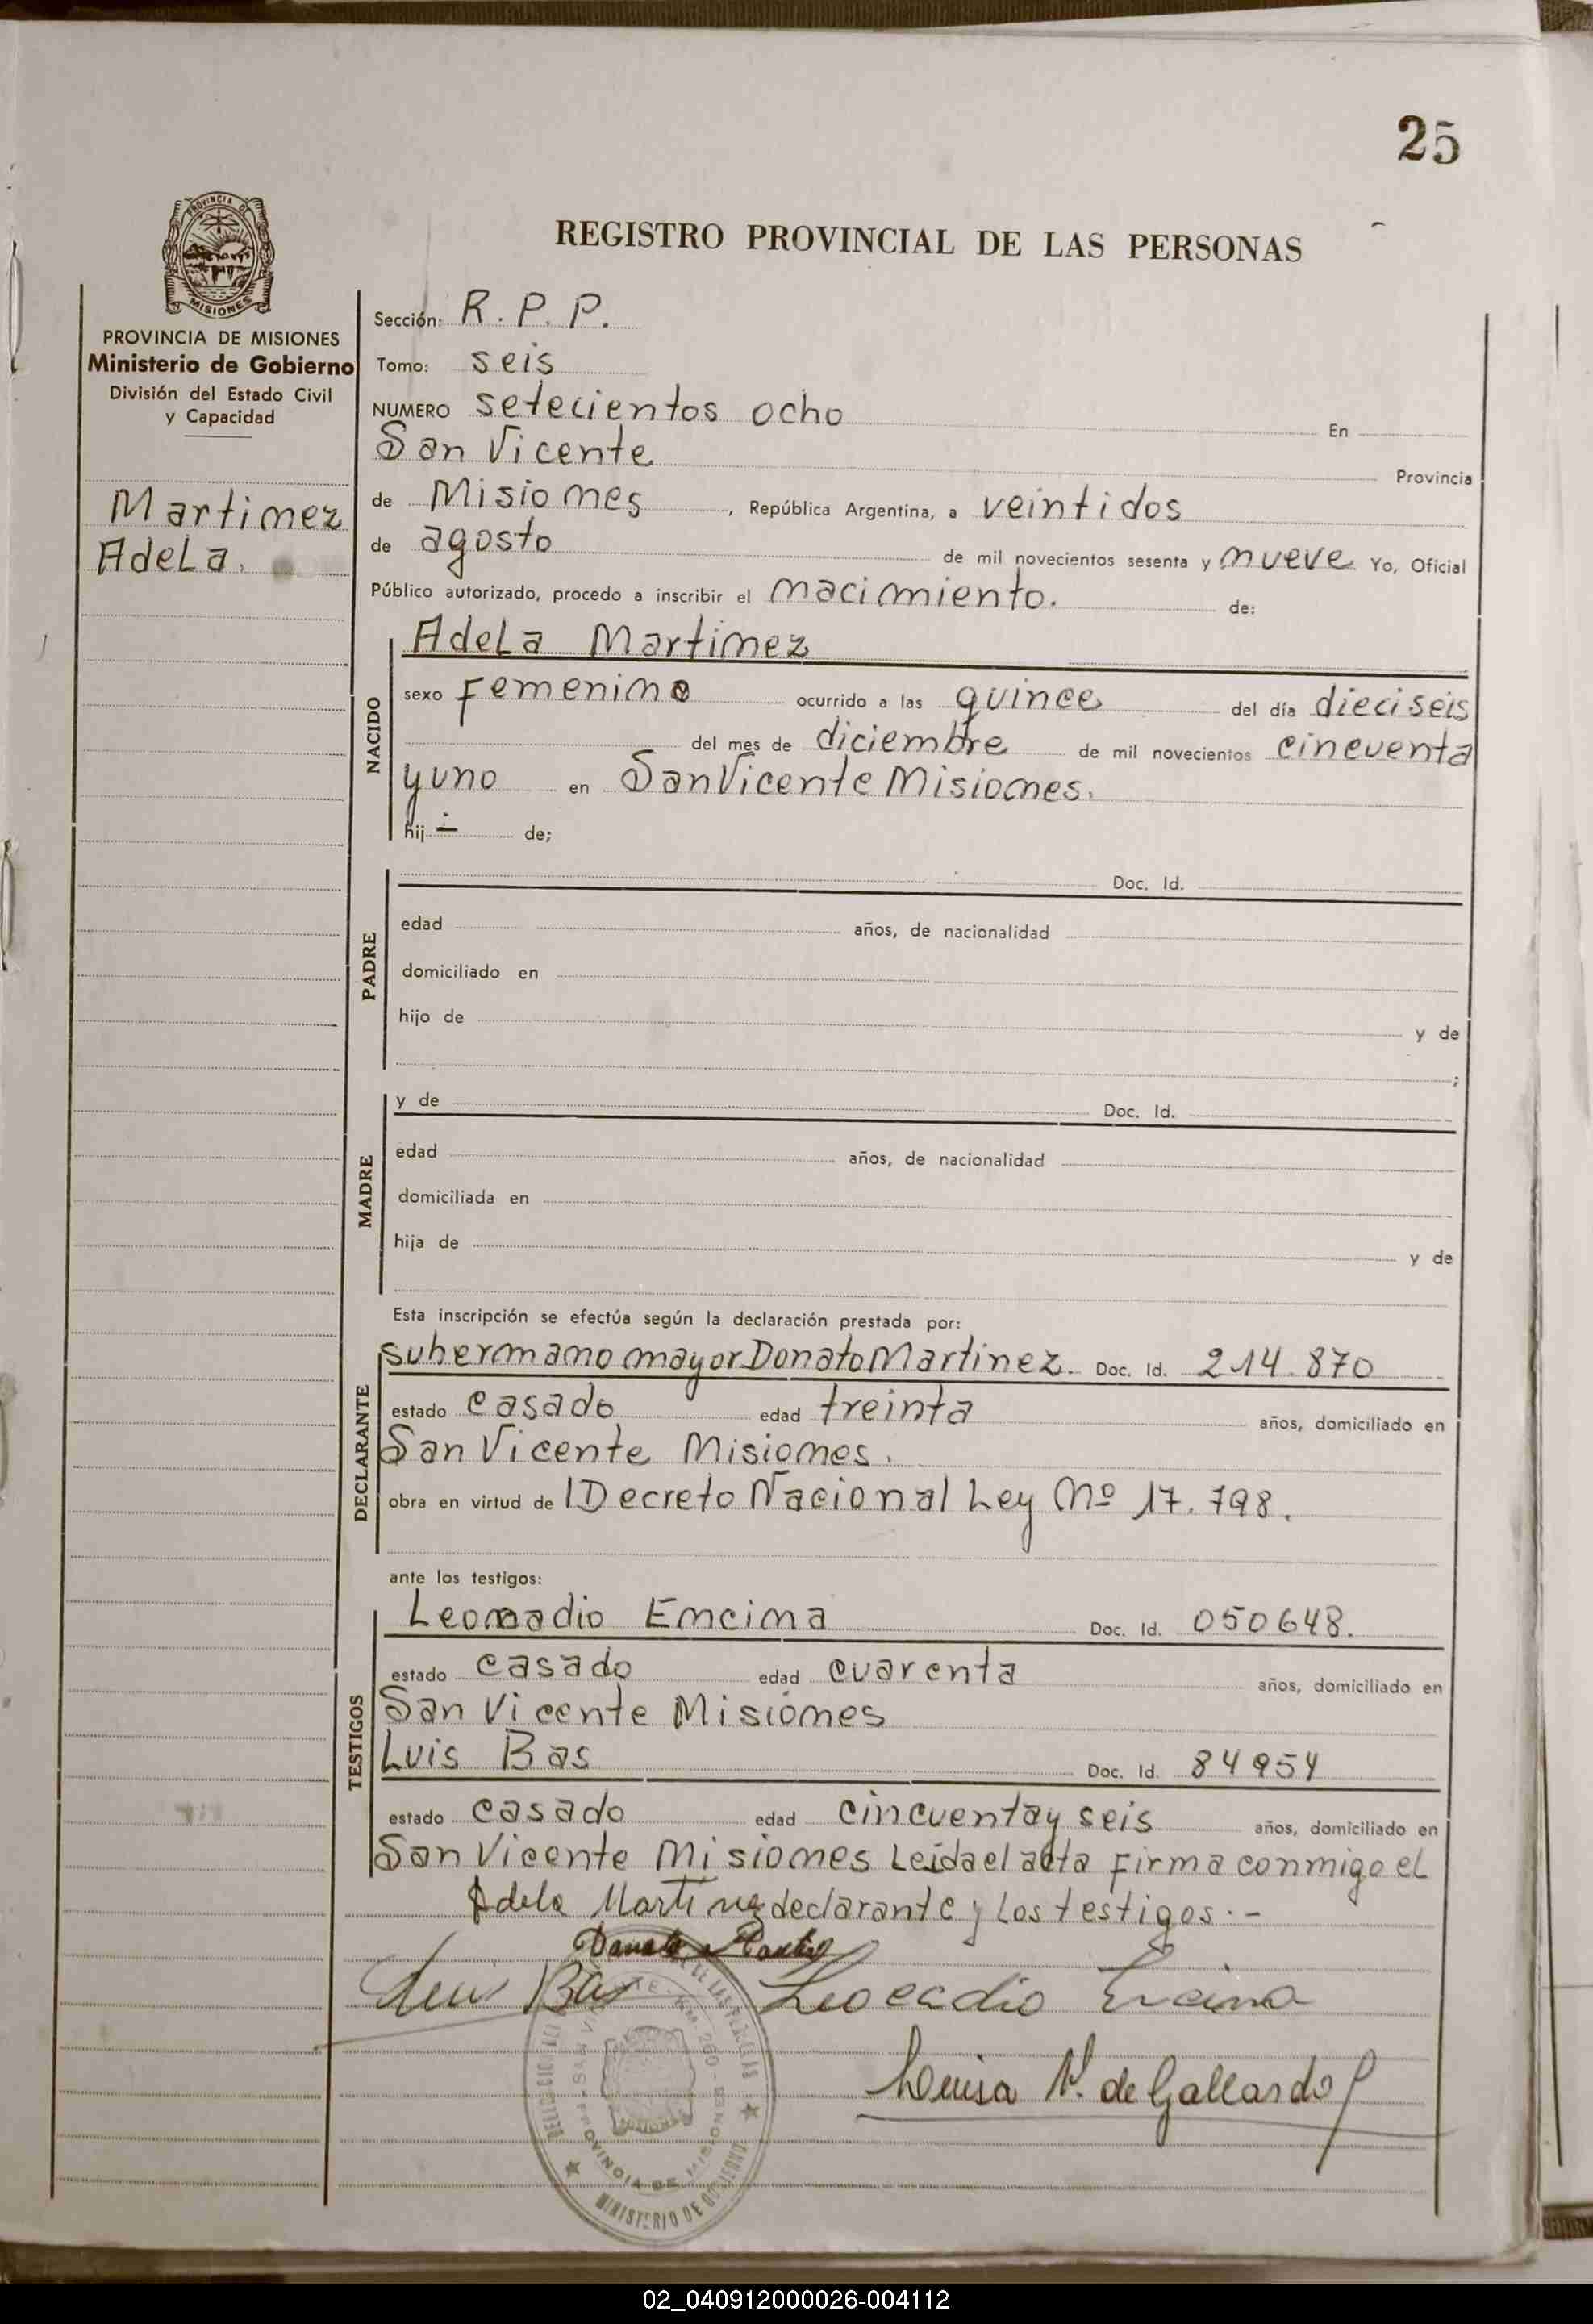 25
PROVINCIA DE
MISIONES
REGISTRO PROVINCIAL DE LAS PERSONAS
PROVINCIA DE MISIONES
Ministerio de Gobierno
División del Estado Civil
y Capacidad
Martinez
Adela.
Sección: R. P. P.
Tomo: seis
NUMERO setecientos ocho En
San Vicente Provincia
de Misiones, República Argentina, a veintidos
de agosto de mil novecientos sesenta y nueve Yo, Oficial
Público autorizado, procedo a inscribir el nacimiento. de:
Adela Martinez
NACIDO
sexo Femenino ocurrido a las quince del día dieciseis
del mes de diciembre de mil novecientos cincuenta
y uno en San Vicente Misiones.
hij - de;
PADRE
Doc. Id.
edad años, de nacionalidad
domiciliado en
hijo de y de
;
MADRE
y de Doc. Id.
edad años, de nacionalidad
domiciliada en
hija de y de
Esta inscripción se efectúa según la declaración prestada por:
DECLARANTE
su hermano mayor Donato Martinez. Doc. Id. 214.870
estado casado edad treinta años, domiciliado en
San Vicente Misiones.
obra en virtud de Decreto Nacional Ley Nº 17.798.
ante los testigos:
TESTIGOS
Leocadio Encina Doc. Id. 050648.
estado casado edad cuarenta años, domiciliado en
San Vicente Misiones
Luis Bas Doc. Id. 84954
estado casado edad cincuenta y seis años, domiciliado en
San Vicente Misiones Leida el acta Firma conmigo el
Adela Martinez declarante y los testigos.-
Luis Bas Leocadio Encina
Luisa V. de Gallardo
PROVINCIA DE MISIONES
MINISTERIO DE GOBIERNO
02_040912000026-004112